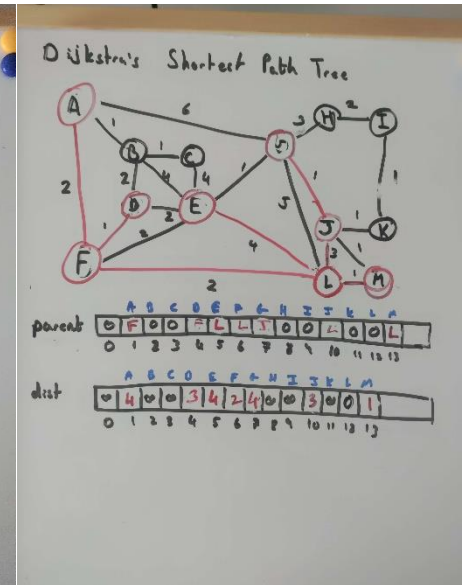 Dijkstra's Shortest Path Tree
A 6 3 H 2 I
1 B 1 C G
2 2 4 4 1 5 1 1
D 2 E J 1 K
1 2 4 3 1
F 2 L 1 M
A B C D E F G H I J K L M
parent ∞ F 0 0 F L L J 0 0 L 0 0 L
0 1 2 3 4 5 6 7 8 9 10 11 12 13
A B C D E F G H I J K L M
dist ∞ 4 ∞ ∞ 3 4 2 4 ∞ ∞ 3 ∞ 0 1
0 1 2 3 4 5 6 7 8 9 10 11 12 13